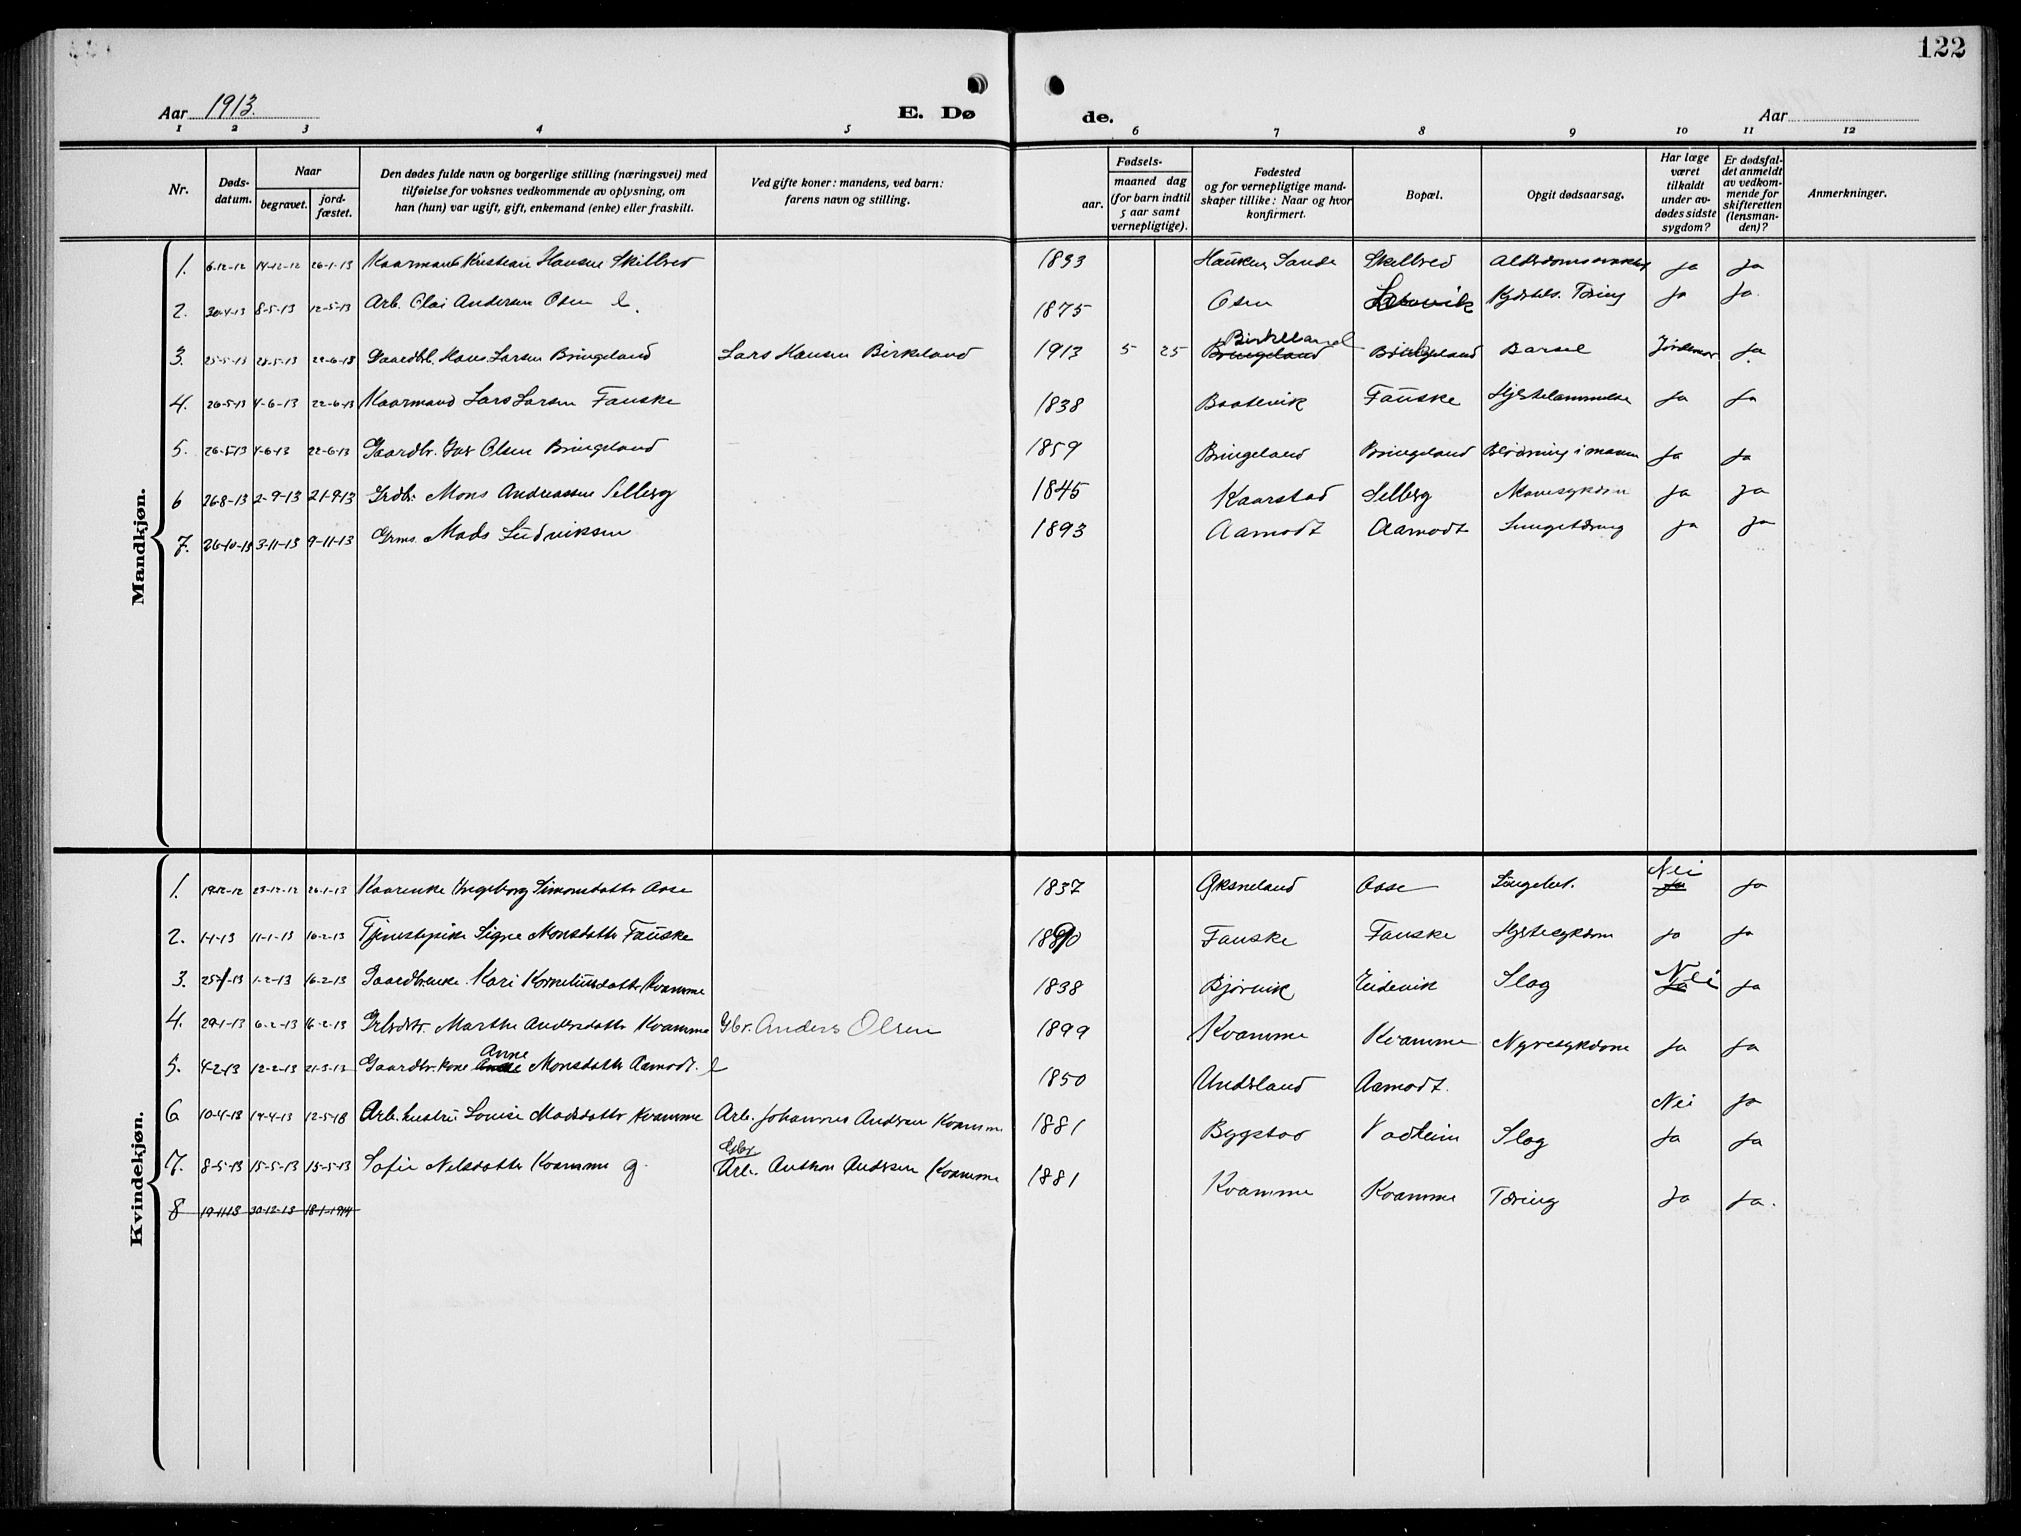 122
Aar 1913. E. Dø de. Aar
1 2 3 4 5 6 7 8 9 10 11 12
Nr.
Døds-
datum.
Naar
begravet.
jord-
fæstet.
Den dødes fulde navn og borgerlige stilling (næringsvei) med
tilføielse for voksnes vedkommende av oplysning, om
han (hun) var ugift, gift, enkemand (enke) eller fraskilt.
Ved gifte koner: mandens, ved barn:
farens navn og stilling.
aar.
Fødsels-
maaned dag
(for barn indtil
5 aar samt
vernepligtige).
Fødested
og for vernepligtige mand-
skaper tillike: Naar og hvor
konfirmert.
Bopæl.
Opgit dødsaarsag.
Har læge
været
tilkaldt
under av-
dødes sidste
sygdom?
Er dødsfal-
det anmeldt
av vedkom-
mende for
skifteretten
(lensman-
den)?
Anmerkninger.
Mandkjøn.
1. 6-12-12 14-12-12 26-1-13 Kaarmand Kristian Hansen Skilbred 1833 Hauken Sande Skilbred Ja Ja
2. 30-4-13 8-5-13 12-5-13 Arb. Olai Andersen Osen e. 1875 Osen Tæring Ja Ja.
3. 25-5-13 28-5-13 22-6-13 Gaardbr. Hans Larsen Bringeland Lars Hansen Birkeland 1913 5 25 Birkeland Bringeland Bringeland Barsel Jordemor Ja
4. 26-5-13 4-6-13 22-6-13 Kaarmand Lars Larsen Fauske 1838 Baatevik Fauske Hjertelammelse Ja Ja
5. 26-5-13 4-6-13 22-6-13 Gaardbr. Olsen Bringeland 1859 Bringeland Bringeland Blødning i maven Ja Ja
6 26-8-13 2-9-13 21-9-13 Grdbr. Mons Andreassen Selberg 1845 Kaarstad Selberg Mavesykdom Ja Ja
7. 26-10-13 3-11-13 9-11-13 Grms. Mads Ludviksen 1893 Aamodt Aamodt Lungetæring Ja Ja
Kvindekjøn.
1. 19-12-12 23-12-12 26-1-13 Kaarenke Ingeborg Simonsdatter Aase 1837 Øksneland Aase Lungebet. Nei Ja Ja
2. 1-1-13 11-1-13 16-2-13 Tjenestepike Signe Monsdatter Fauske 1890 Fauske Fauske Hjertesykdom Ja Ja
3. 25-1-13 1-2-13 16-2-13 Gaardbr.enke Kari Korneliusdatter Kvamme 1838 Bjørvik Eidevik Slag Nei Ja Ja
4. 29-1-13 6-2-13 16-2-13 Grbrdtr. Marthe Andersdatter Kvamme Gbr. Anders Olsen 1899 Kvamme Kvamme Nyresykdom Ja Ja
5. 4-2-13 12-2-13 21-3-13 Gaardbr.kone Anne Monsdatter Aamodt. e 1850 Undeland Aamodt. Nei Ja
6 10-4-13 14-4-13 12-5-13 Arb. hustru Louise Madsdatter Kvamme Arb. Johannes Andersen Kvamme 1881 Bygstad Vadheim Slag Ja Ja
7. 8-5-13 15-5-13 15-5-13 Sofie Nelsdatter Kvamme g. Arb. Anthon Andersen Kvamme 1881 Kvamme Kvamme Tæring Ja Ja.
8 19-11-13 30-12-13 18-1-1914